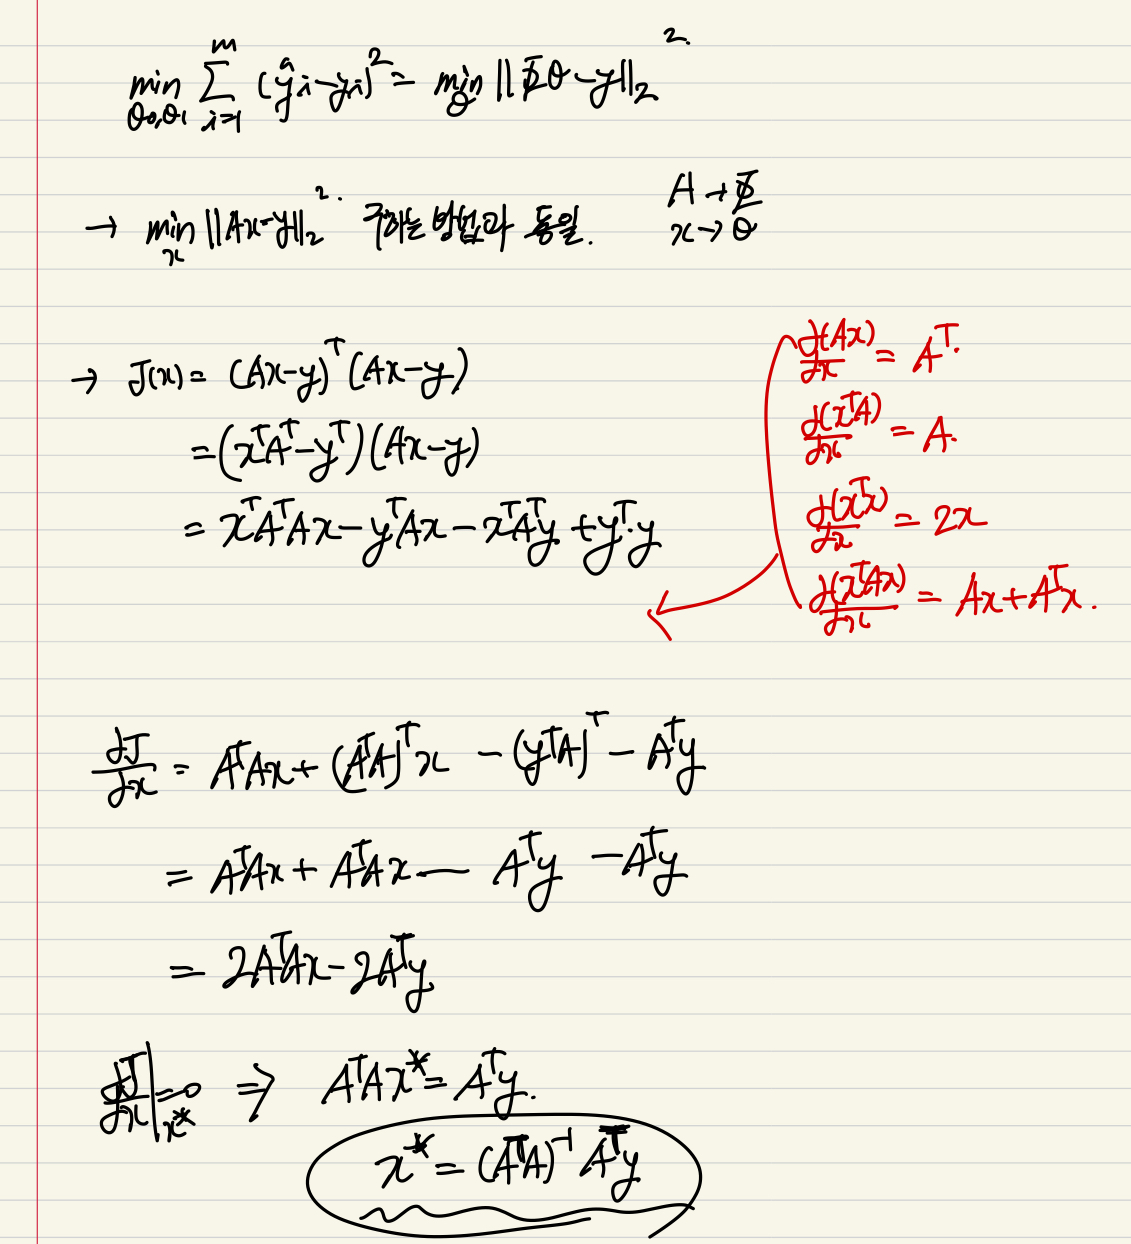 min_{θ₀,θ₁} Σ_{i=1}^{m} (ŷi - yi)² = min_θ ||Φθ - y||₂²
→ min_x ||Ax-y||₂². 구하는 방법과 동일.
A → Φ
x → θ
→ J(x) = (Ax-y)ᵀ(Ax-y)
= (xᵀAᵀ - yᵀ)(Ax-y)
= xᵀAᵀAx - yᵀAx - xᵀAᵀy + yᵀ·y
d(Ax)/dx = Aᵀ.
d(xᵀA)/dx = A.
d(xᵀx)/dx = 2x
d(xᵀAx)/dx = Ax + Aᵀx.
dJ/dx = AᵀAx + (AᵀA)ᵀx - (yᵀA)ᵀ - Aᵀy
= AᵀAx + AᵀAx - Aᵀy - Aᵀy
= 2AᵀAx - 2Aᵀy
dJ/dx|_{x*} = 0 ⇒ AᵀAx* = Aᵀy.
x* = (AᵀA)⁻¹Aᵀy